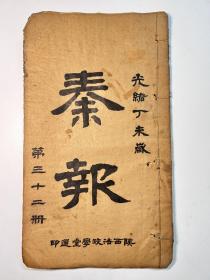 光緒丁未歲
秦報
第三十二册
陝西法政學堂選印